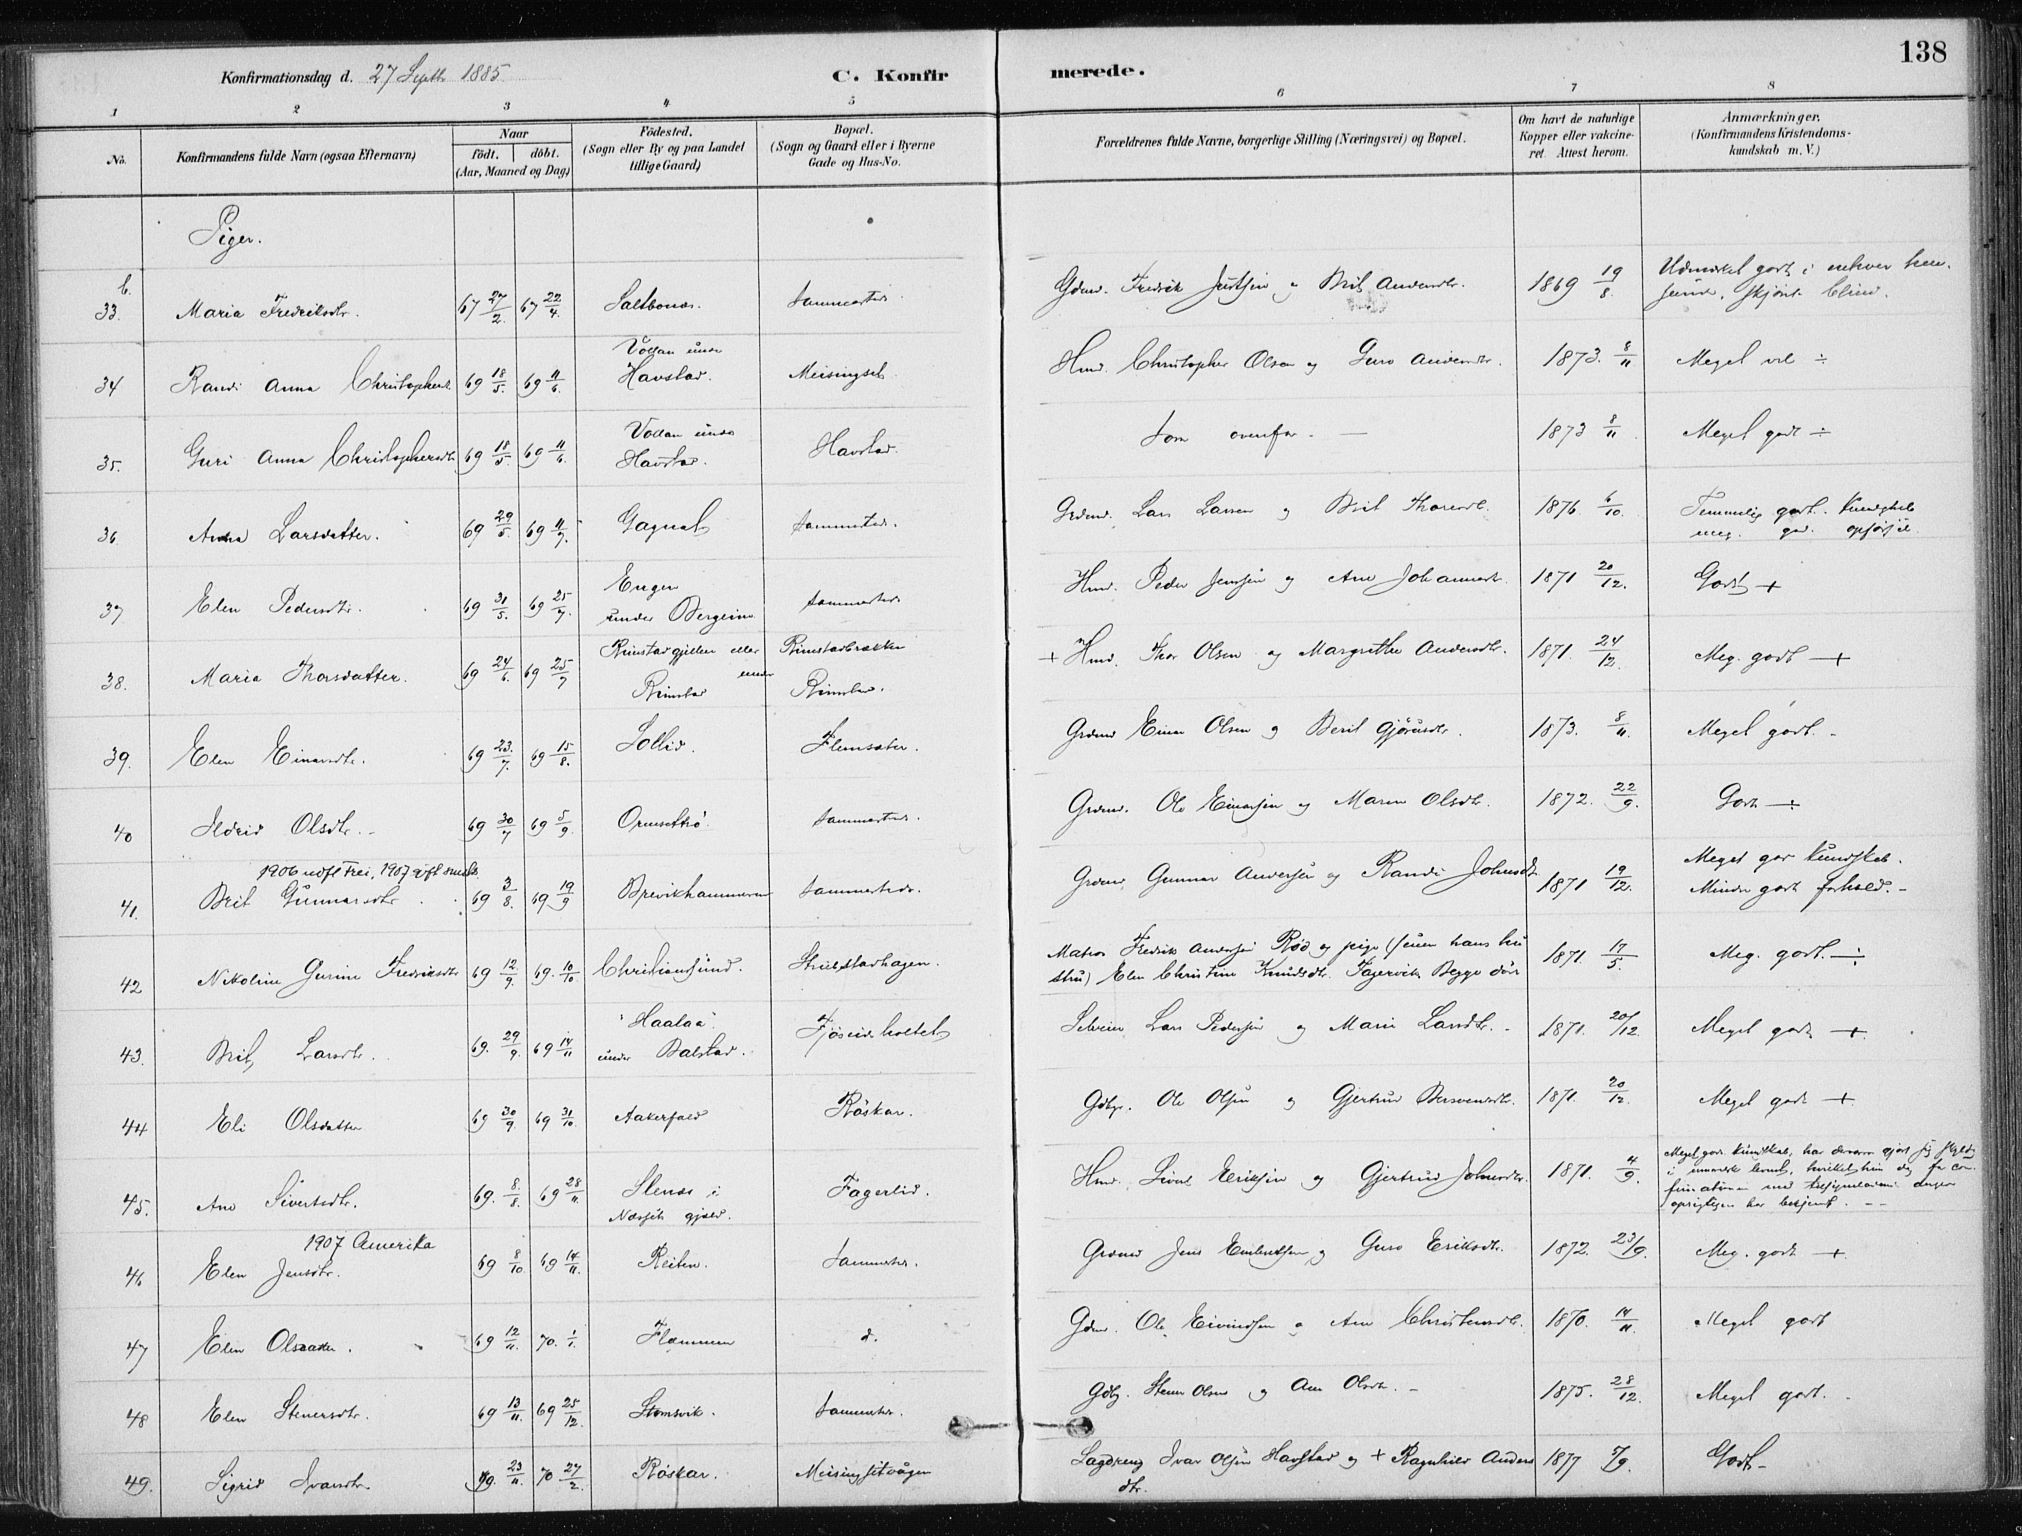 138
Konfirmationsdag d. 27 Septbr 1885.
C. Konfirmerede.
1 2 3 4 5 6 7 8
No. Konfirmandens fulde Navn (ogsaa Efternavn) Naar født. døbt. (Aar, Maaned og Dag) Fødested. (Sogn eller By og paa Landet tillige Gaard) Bopæl. (Sogn og Gaard eller i Byerne Gade og Hus-No. Forældrenes fulde Navne, borgerlige Stilling (Næringsvei) og Bopæl. Om havt de naturlige Kopper eller vakcineret. Attest herom. Anmærkninger. (Konfirmandens Kristendomskundskab m. V.)
Piger.
33. Maria Fredriksdtr. 67 27/2. 67 22/4. Saltbones. Sammesteds. Gdmd. Fredrik Justsen og Brit Andersdtr. 1869 19/8. Udmerket godt i enhver henseende, skjønt blind.
34 Randi Anna Christophersd. 69 18/5. 69 11/6. Vollan under Havstad. Meisingset. Hmd. Christopher Olsen og Guro Andersdtr. 1873. 8/11 Meget vel ÷
35. Guri Anna Christophersdtr 69 18/5. 69 11/6. Vollan under Havstad. Havstad. Som ovenfor. — 1873 8/11 Meget godt ÷
36 Anna Larsdatter. 69 29/5. 69 11/7. Gagnat Sammesteds. Grdmd. Lars Larsen og Brit Thoresdt. 1876. 6/10. Temmelig godt. Kundskab meg. god opførsel
37 Elen Pedersdtr. 69 31/5. 69 25/7. Engen under Bergeim Sammesteds Hmd. Peder Jenssen og Ane Johannesdt. 1871 20/12. Godt +
38. Maria Thorsdatter. 69 24/6. 69 25/7 Rimstadgjellen eller under Rimstad Rimstadbrækken Rimstad. + Hmd. Thor Olsen og Margrethe Andersdtr. 1871. 24/12. Meg. godt +
39. Elen Einarsdtr. 69 23/7. 69 15/8. Sollid. Flemsæter. Grdmd Einar Olsen og Berit Gjørusdtr. 1873. 8/11. Meget godt. -
40 Ildrid Olsdtr. 69 30/7 69 5/9. Ormsettrø Sammesteds. Grdmd. Ole Einarsen og Maren Olsdtr. 1872. 22/9. Godt ÷
1906 udfl Frei, 1907 gift smsts.
41. Brit Gunnarsdtr 69 3/8. 69 19/9 Brevikhammeren Sammesteds. Grdmd. Gunnar Andersen og Randi Johnsdt. 1871 19/12. Meget god Kundskab. Mindre godt forhold. -
42 Nikoline Gurine Fredriksdtr 69 12/9. 69. 10/10 Christiansund. Matros Fredrik Andersen Rød og pige (senere hans hustru) Elen Christine Knudsdtr. Fagervik Begge 1871. 17/5. Meg. godt. ÷
43. Brit Larsdtr. 69. 29/9. 69 14/11 "Haalaa" under Balstad. Lars Pedersen og Marie Larsdtr. 1871. 20/12 Meget godt +
44 Eli Olsdatter 69 30/9. 69 31/10 Aakerfald Røskar. Gdbr. Ole Olsen og Gjertrud 1871. 20/12. Meget godt +
45. Ane Sivertsdtr. 69. 8/8. 69 28/11. Stenes i Næssets gjæld. Fagerlid. Hmd. Sivert Eriksen og Gjertrud Johnsdtr. 1871. 4/9. Meget god Kundskab, har
1907 Amerika
46 Elen Jensdtr. 69 8/10 69 14/11. Reiten. Sammested. Grdmd Jens Embretsen og Guro Eriksdtr. 1872. 23/9. Meg. godt +
47 Elen Olsdatter. 69 12/11. 70. 1/1. Flemmen d. Gdmd. Ole Eivindsen og Ane Christensdtr. 1870. 14/11. Meget godt
48 Elen Stenersdtr. 69 13/11. 69 25/12. Stomsvik. Sammested. Gdbr. Stener Olsen og Ane Olsdtr. - 1875. 28/12. Meget godt.
49. Sigrid Ivarsdtr 69. 23/11. 70 27/2. Røskar. Meisingsetvågen Sagdreng Ivar Olsen Havstad og + Ragnhild Andersdtr. 1877 7/9. Godt -